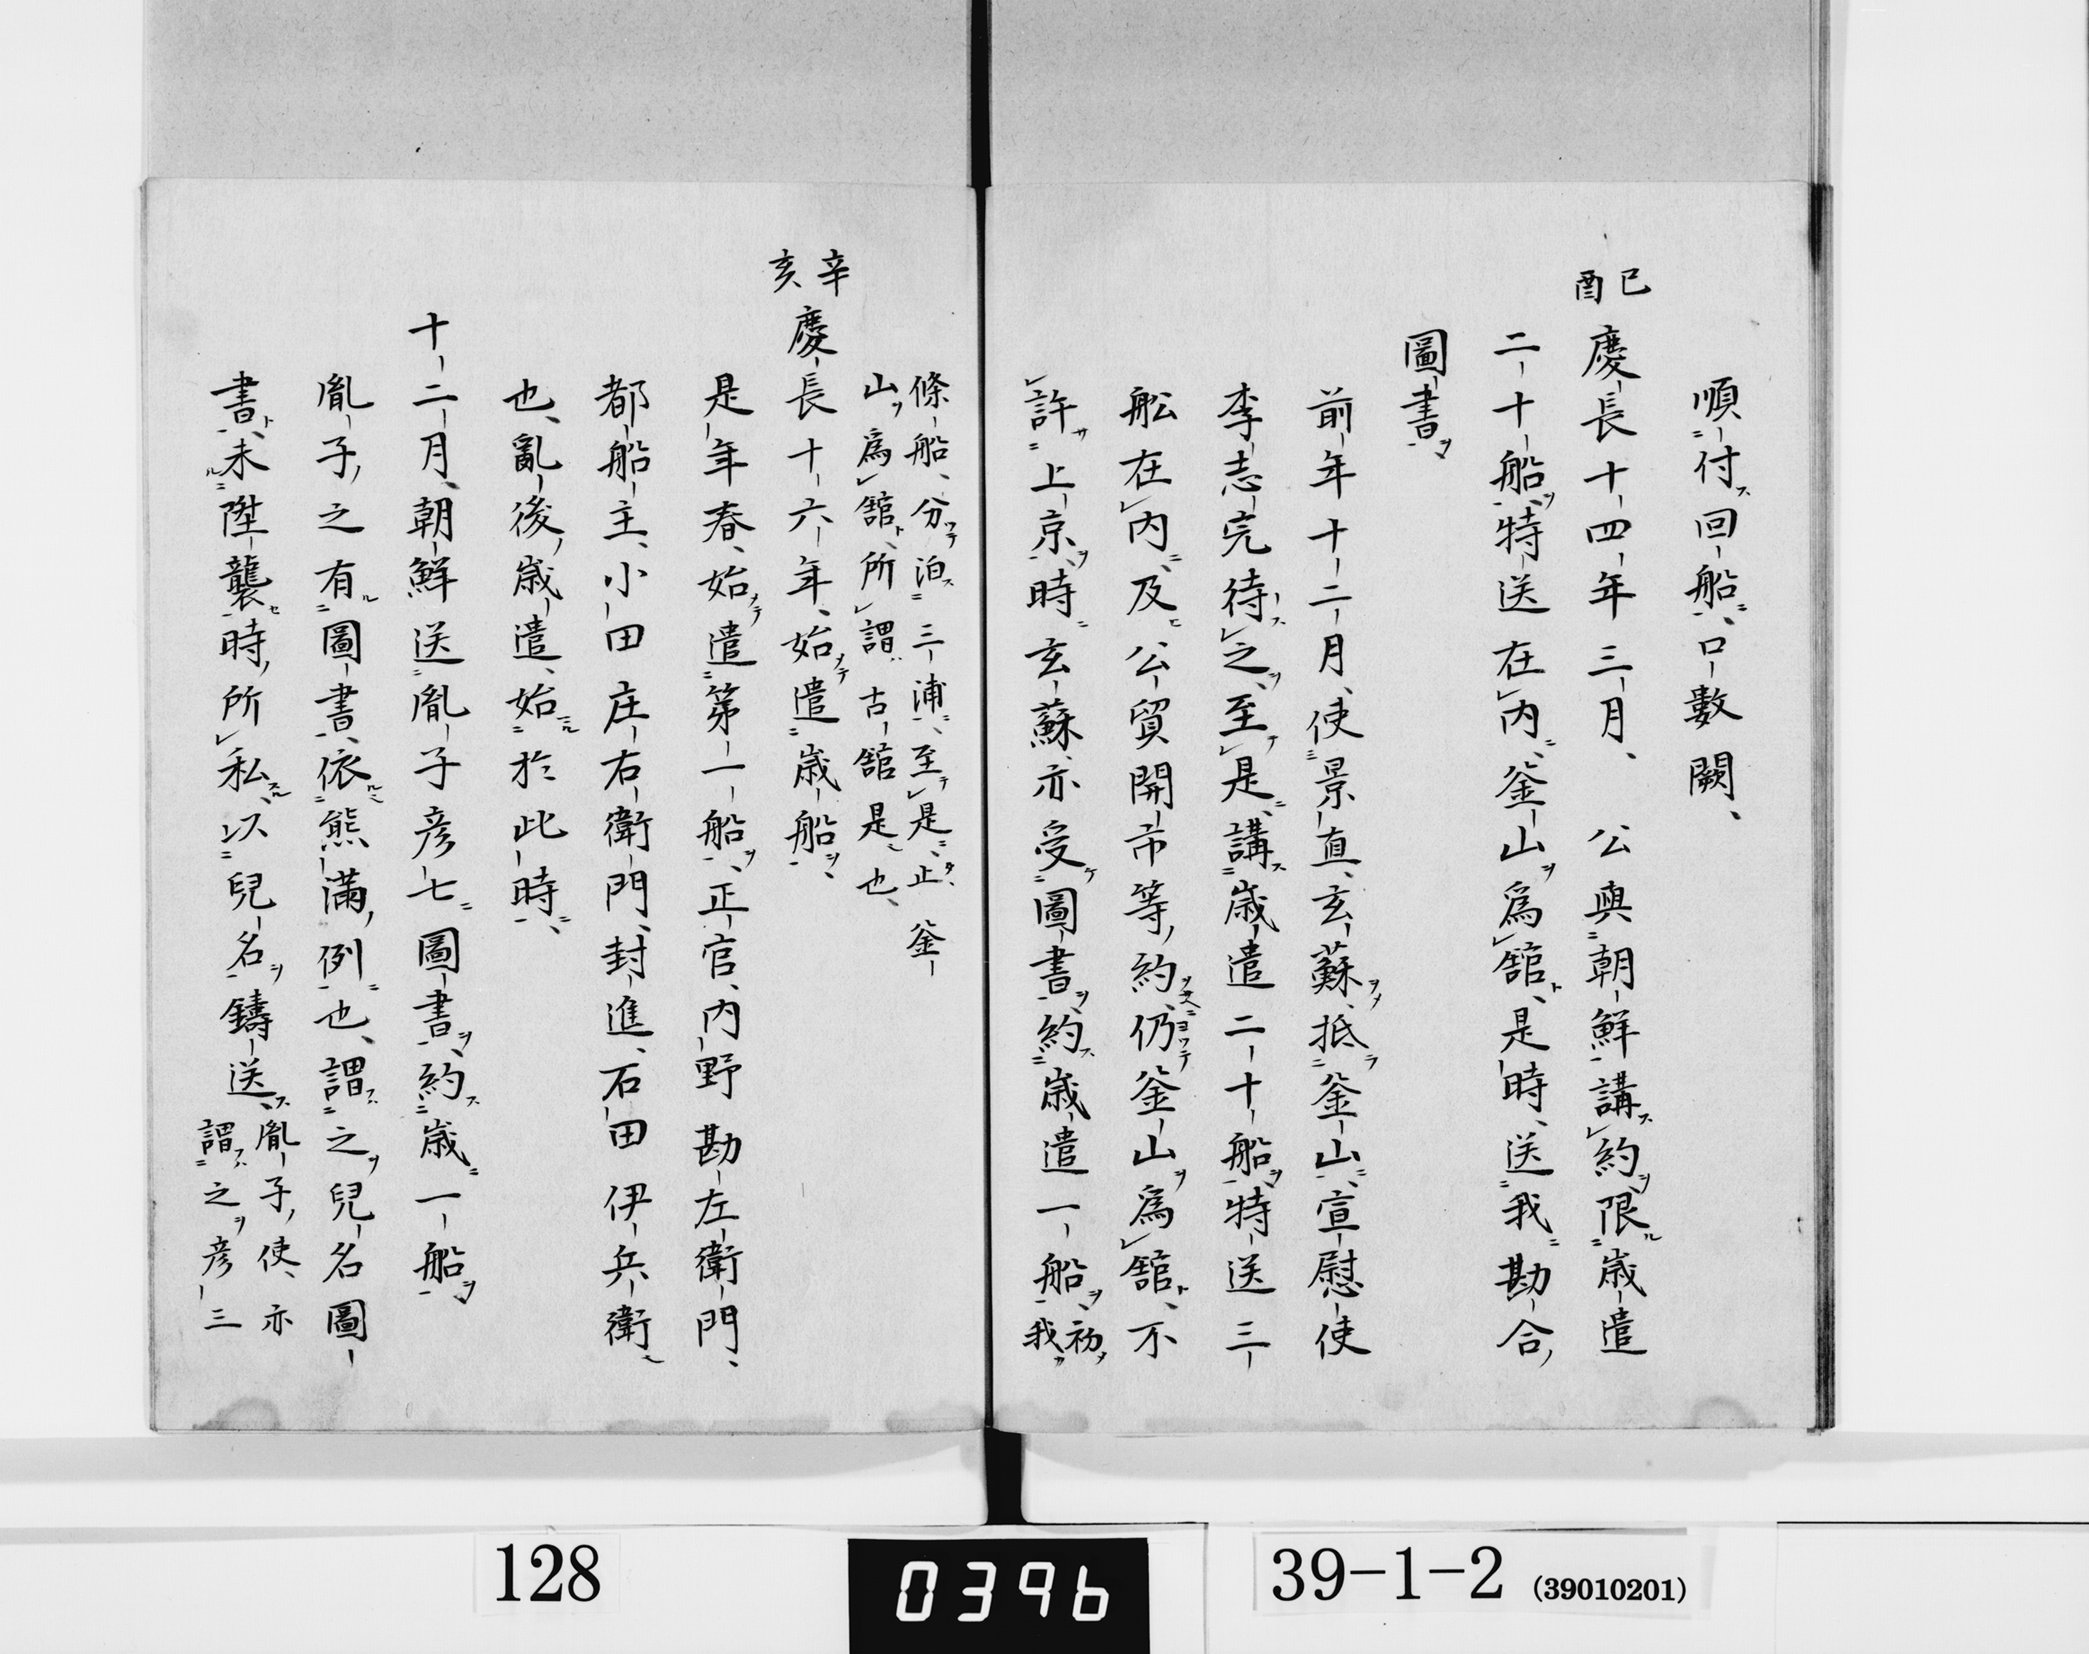 順付回船、口數闕、
己酉
慶長十四年三月、公與朝鮮講約限歳遣
二十船特送在内、釜山為舘、是時、送我勘合
圖書
前年十二月、使景直、玄蘇、抵釜山、宣慰使
李志完待之、至是、講歳遣二十船特送三
舩在内、及公貿開市等、約、仍釜山為舘、不
許上京、時玄蘇、亦受圖書、約歳遣一船、初我
條船、分泊三浦、至是、止釜
山為舘、所謂古舘是也、
辛亥
慶長十六年、始遣歳船、
是年春、始遣第一船、正官、内野勘左衛門、
都船主、小田庄右衛門、封進、石田伊兵衛
也、亂後、歳遣、始於此時、
十二月、朝鮮送胤子彦七圖書、約歳一船
胤子之有圖書、依熊滿例也、謂之兒名圖
書、未陞襲時、所私、以兒名鑄送、胤子使、亦
謂之彦三
128
0396
39-1-2 (39010201)